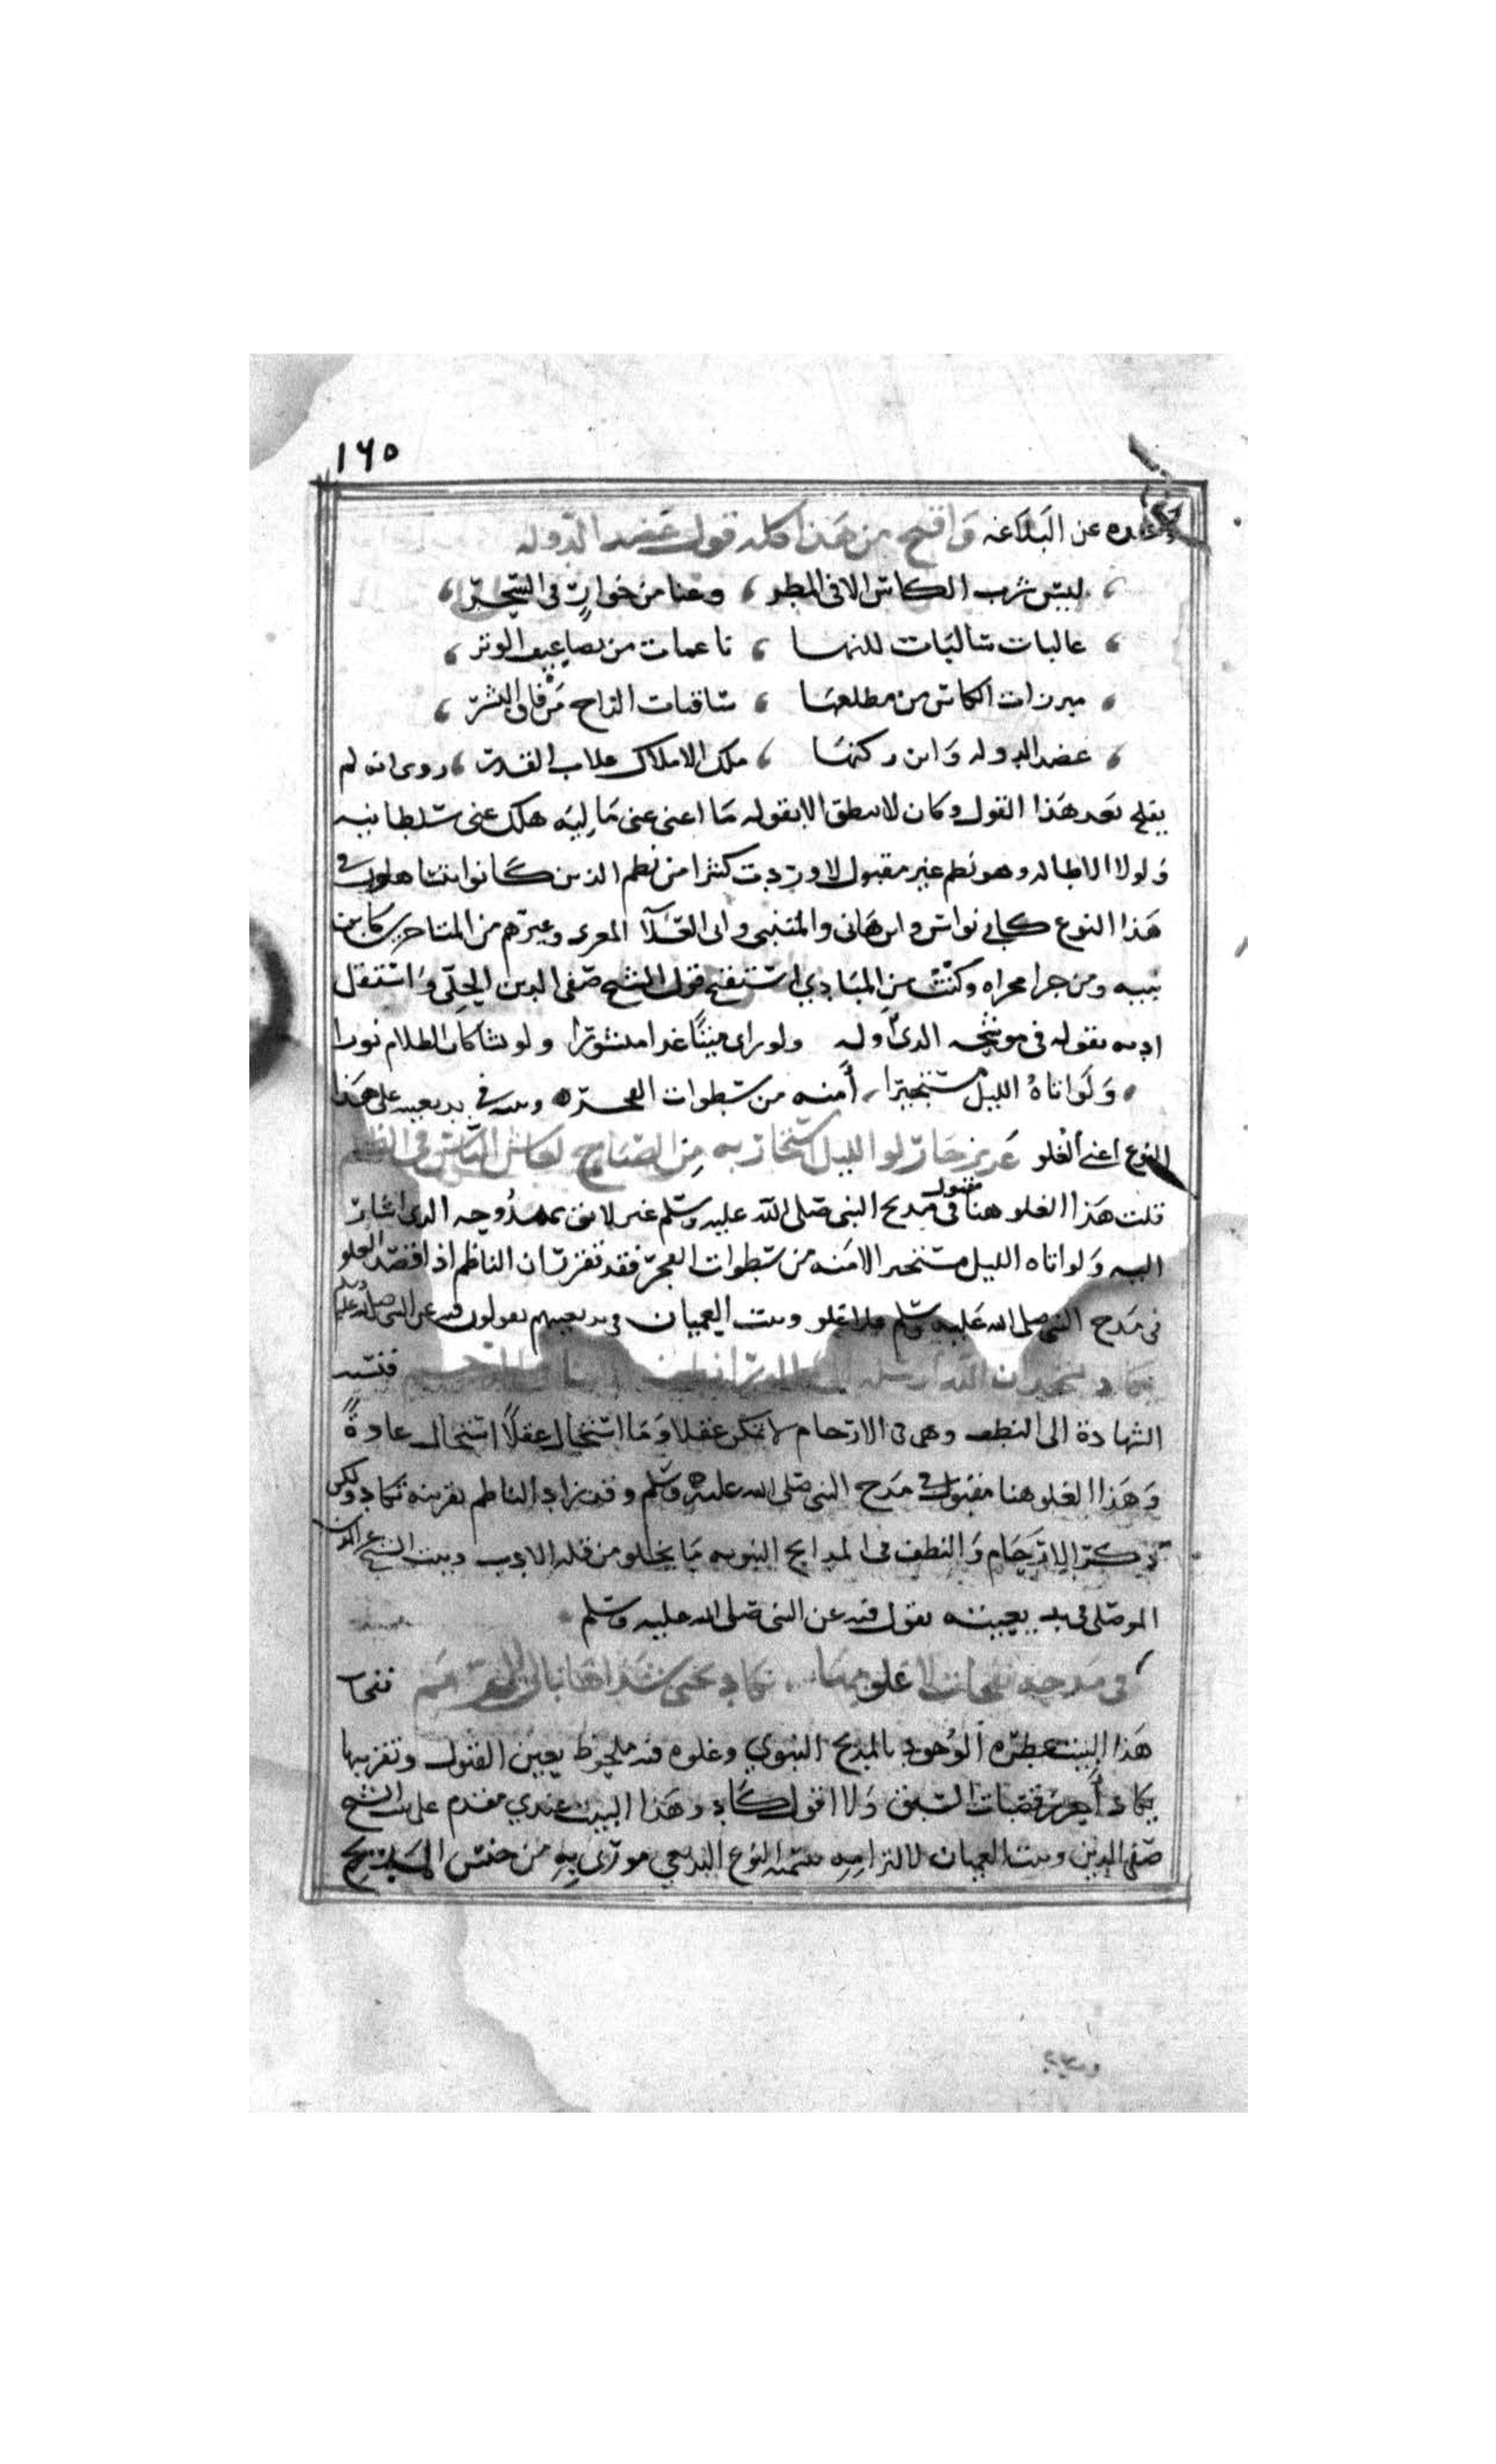 ١٦٥
عن البلاغه واقبح من هذا كله قول عضد الدوله
ليس شرب الكاس الا فى المطر ، وغنا من جوارٍ فى السحر ،
غالبات سالبات للنها ، ناعمات من تضاعيف الوتر ،
مبرزات الكاس من مطلعها ، ساقيات الراح من فاق البشر ،
عضد الدوله وابن ركنها ، ملك الاملاك غلاب القدر ، روى انه لم
يفلح بعد هذا القول وكان لا ينطق الا بقوله ما اغنى عنى ماليه هلك عنى سلطانيه
ولولا الاطاله وهو نظم غير مقبول لاوردت كثيرا من نظم الذين كانوا يتساهلون فى
هذا النوع كابى نواس وابن هانى والمتنبى وابى العلآ المعرى وغيرهم من المتاخرين كابن
نبيه ومن جرا مجراه وكنت من المبادي استقبح قول الشيخ صفى الدين الحلّى واستقل
ادبه بقوله فى موشحه الذى اوله ولو راى ميتًا غدا منشورا ولو نشا كان الظلام نورا
ولو اتاهُ الليل مستجيرا ، أمنه من سطوات الفجره وبيته فى بديعيته على هذا
النوع اعنى الغلو عزيز جار لو الليل استجار به من الصباح لعاش الناس فى الظلم
قلت هذا الغلو هنا مقبول فى مديح النبى صلى الله عليه وسلم غير لائق بممدوحه الذى اشار
اليه ولو اتاه الليل مستجيرا لامنه من سطوات الفجر فقد تقرر ان الناظم اذا قصد الغلو
فى مدح النبى صلى الله عليه وسلم فلا غلو وبيت العميان فى بديعيتهم يقولون فيه عن النبى صلى الله عليه وسلم
يكاد ان الله ارسله الى فنسبه
الشهادة الى النطف وهى فى الارحام لا تمكن عقلا وما استحال عقلًا استحال عادةً
وهذا الغلو هنا مقبول فى مدح النبى صلى الله عليه وسلم وقد زاد الناظم تقريبه تكاد ولكن
ذكر الارحام والنطف فى المدايح النبويه ما يخلو من قلة الادب وبيت الشيخ عز الدين
الموصلى فى بديعيته يقول فيه عن النبى صلى الله عليه وسلم
فى مدحه نفحات لا غلو بها يكاد يحيى شذاها بالى الرمم نفحات
هذا البيت عطره الوجود بالمديح النبوي وغلوه فيه ملحوظ بعين القبول وتقريبها
بكاد أحرز قصبات السبق ولا اقول كاد وهذا البيت عندي مقدم على بيت الشيخ
صفى الدين وبيت العميان لالتزامه بتسميه النوع البديعى مورّى به من جنس المديح